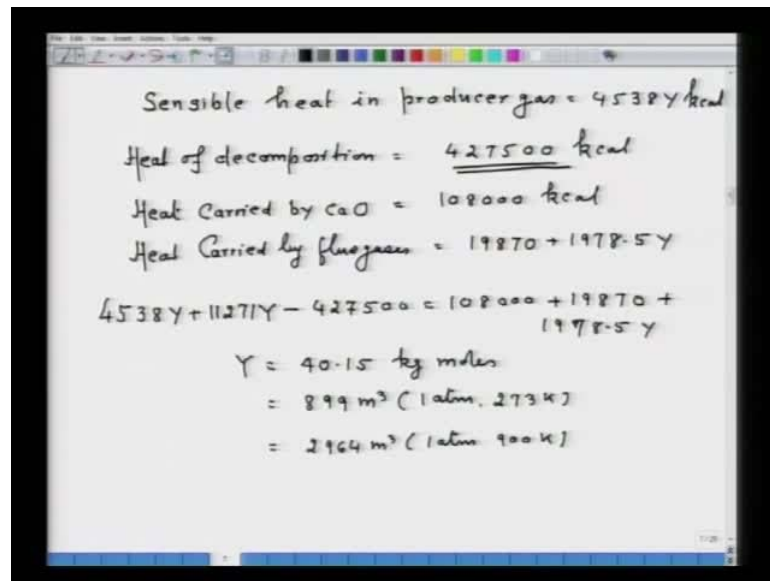 Sensible heat in producer gas = 4538Y kcal
Heat of decomposition = 427500 kcal
Heat Carried by CaO = 108000 kcal
Heat Carried by fluegases = 19870 + 1978.5Y
4538Y + 11271Y - 427500 = 108000 + 19870 +
1978.5Y
Y = 40.15 kg moles
= 899 m³ (1 atm, 273 K)
= 2964 m³ (1 atm 900 K)